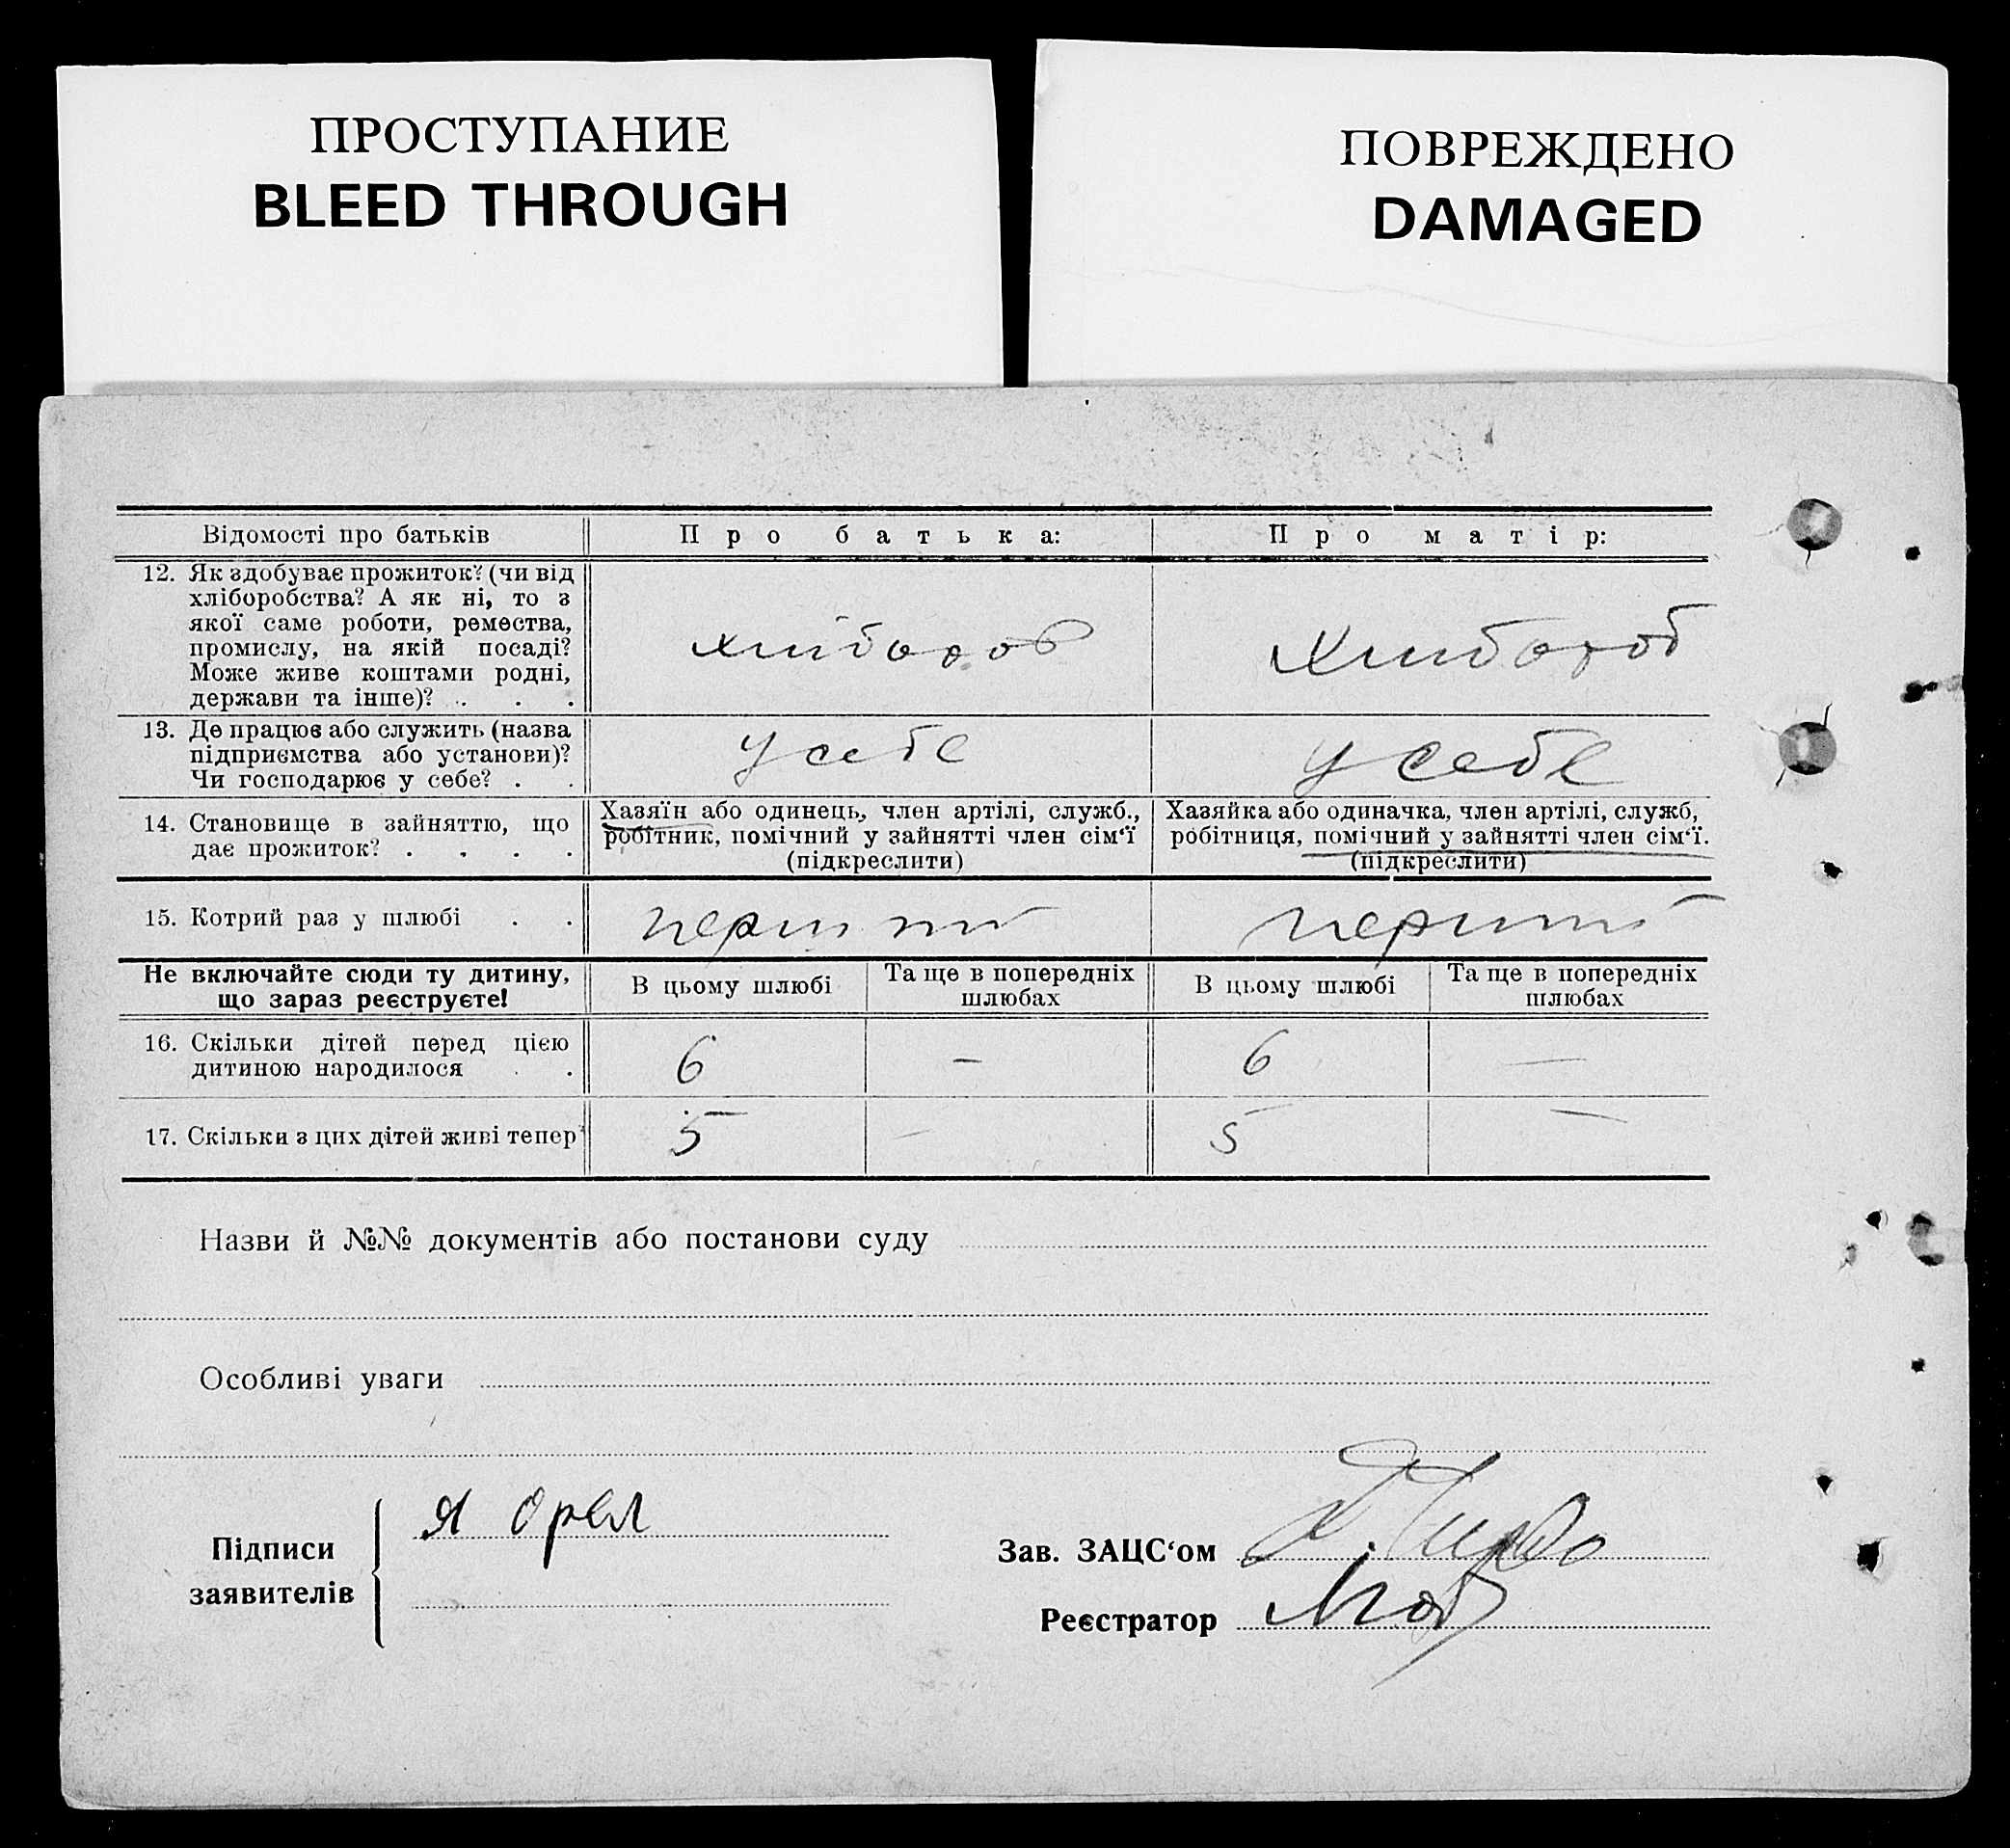 ПРОСТУПАНИЕ
BLEED THROUGH
ПОВРЕЖДЕНО
DAMAGED
Відомості про батьків
Про батька:
Про матір:
12. Як здобуває прожиток? (чи від
хліборобства? А як ні, то з
якої саме роботи, ремества,
промислу, на якій посаді?
Може живе коштами родні,
держави та інше)? . . .
хлібороб
хлібороб
13. Де працює або служить (назва
підприємства або установи)?
Чи господарює у себе? . .
у себе
у себе
14. Становище в зайняттю, що
дає прожиток? . . . .
Хазяїн або одинець, член артілі, служб.,
робітник, помічний у зайнятті член сім‘ї
(підкреслити)
Хазяйка або одиначка, член артілі, служб,
робітниця, помічний у зайнятті член сім‘ї.
(підкреслити)
15. Котрий раз у шлюбі . .
перший
перший
Не включайте сюди ту дитину,
що зараз реєструєте!
В цьому шлюбі
Та ще в попередніх
шлюбах
В цьому шлюбі
Та ще в попередніх
шлюбах
16. Скільки дітей перед цією
дитиною народилося . .
6
—
6
—
17. Скільки з цих дітей живі тепер
5
—
5
—
Назви й №№ документів або постанови суду
Особливі уваги
Підписи
заявителів
Я Орел
Зав. ЗАЦС‘ом
Реєстратор